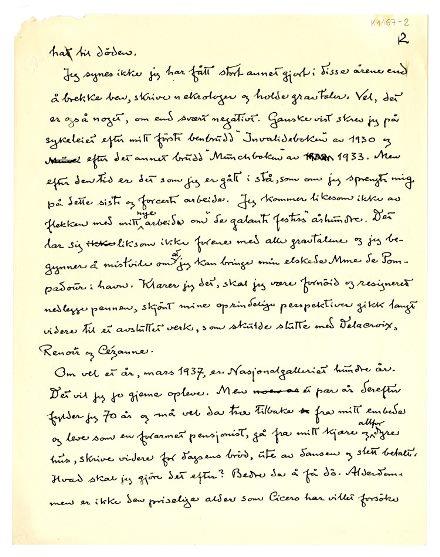 K4167-2
2
hat bir döden.
Jeg synes ikke jeg har fått stort annet gjort i disse årene end
å brekke ben, skrive nekrologer og holde gravtaler. Vel, det
er også noget, om end svært negativt. Ganske vist skrev jeg på
sykeleiet efter mitt förste benbrudd "Invalideboken" av 1930 og
efter det annet brudd "Munchboken" av 1933. Men
efter den tid er det som jeg er gått i stå, som om jeg sprengte mig
på dette siste og forcerte arbeide. Jeg kommer likesom ikke av
flekken med mitt nye arbeide om "de galante festers" århundre. Det
lar sig liksom ikke forene med alle gravtalene og jeg be-
gynner å mistvile om at jeg kan bringe min elskede Mme de Pom-
padour i havn. Klarer jeg det, skal jeg være fornöid og resigneret
nedlegge pennen, skjönt mine oprindelige perspektiver gikk langt
videre til et avsluttet verk, som skulde slutte med Delacroix,
Renoir og Cézanne.
Om vel et år, mars 1937, er Nasjonalgalleriet hundre år.
Det vil jeg jo gjerne opleve. Men et par år derefter
fylder jeg 70 år og må vel da træ tilbake fra mitt embede
og leve som en forarmet pensjonist, gå fra mitt kjære og altfor dyre
hus, skrive videre for dagens bröd, ute av dansen og slett betalt.
Hvad skal jeg gjöre det efter? Bedre da å få dö. Alderdom-
men er ikke den priselige alder som Cicero har villet forsöke